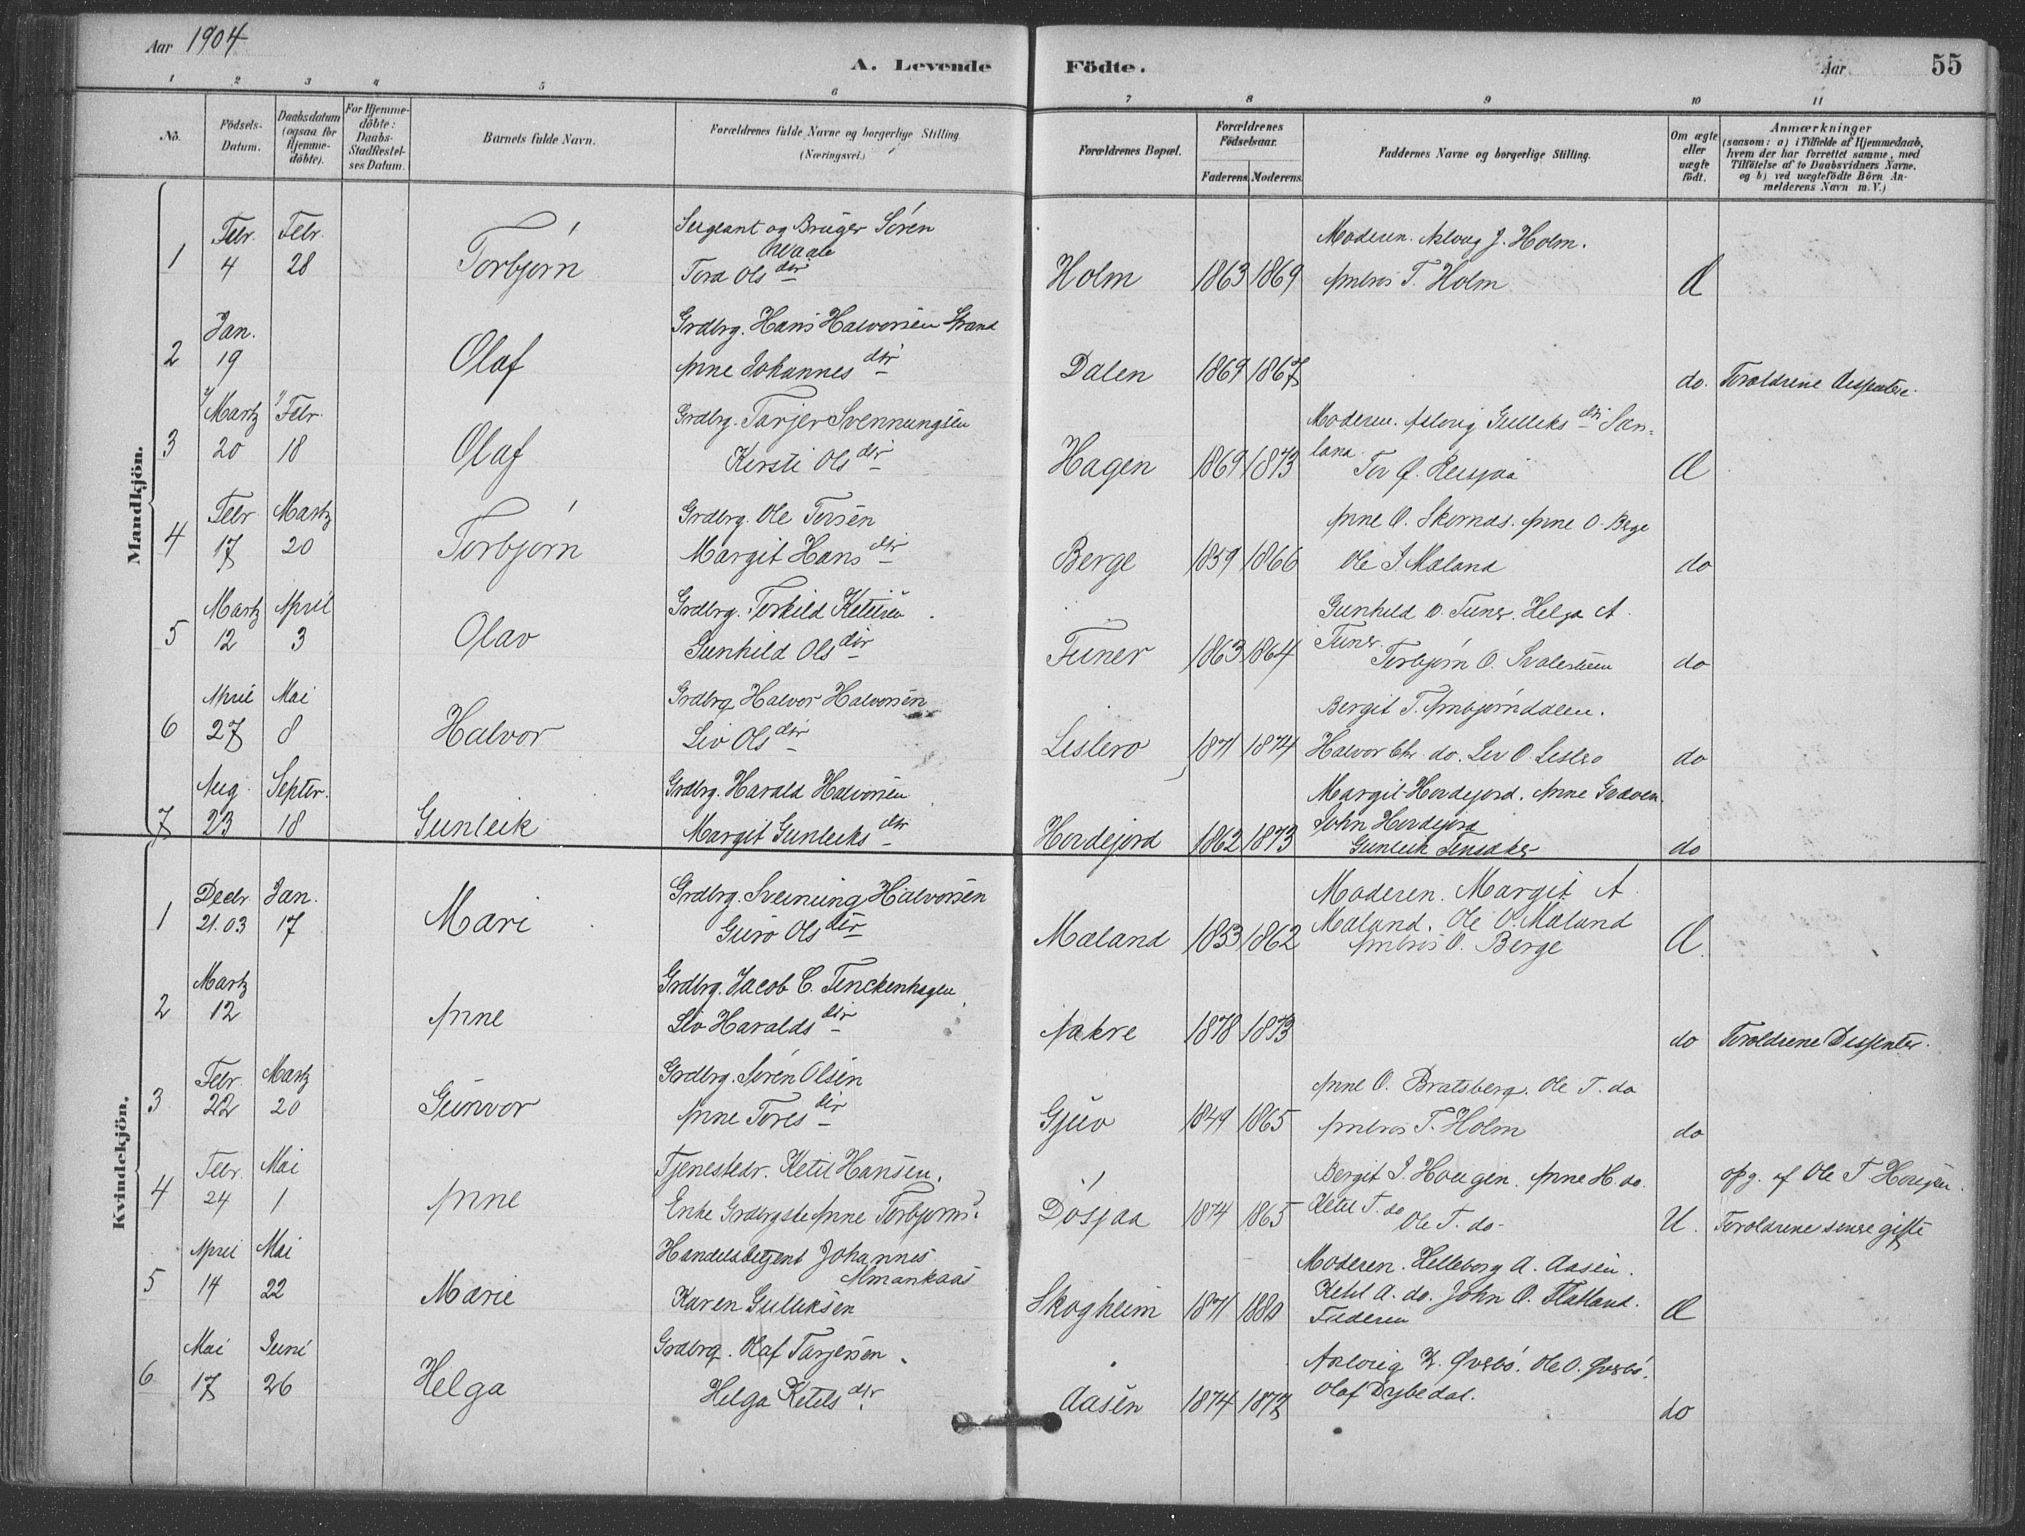 Aar 1904
A. Levende Födte.
Aar
55
1 2 3 4 5 6 7 8 9 10 11
No.
Födsels-Datum.
Daabsdatum (ogsaa for Hjemme-döbte).
For Hjemme-döbte: Daabs-Stadfestel-ses Datum.
Barnets fulde Navn.
Forældrenes fulde Navne og borgerlige Stilling. (Næringsvei.)
Forældrenes Bopæl.
Forældrenes Födselsaar.
Faderens. Moderens.
Faddernes Navne og borgerlige Stilling.
Om ægte eller uægte födt.
Anmærkninger (saasom: a) i Tilfælde af Hjemmedaab, hvem der har forrettet samme, med Tilföielse af to Daabsvidners Navne. og b) ved uægtefödte Börn An-melderens Navn m.V.)
Mandkjön.
1 Febr. 4 Febr. 28 Torbjørn
Sergeant og Bruger Søren Waale
Tora Olsdtr
Holm 1863 1869
Moderen. Aslaug J. Holm.
Ambros T. Holm
Æ
2 Jan. 19 Olaf
Grdbrg. Hans Halvorsen Strand
Anne Johannesdtr
Dalen 1869 1867 do. Foroldrene dissentere.
3 Martz 20 Febr 18 Olaf
Grdbrg. Tarjer Svennungsen
Kirsti Olsdtr
Hagen 1869 1873
Moderen. Aslaug Gulleksdtr San-
land
Tov O.
Æ
4 Febr 17 Martz 20 Torbjørn
Grdbrg. Ole Torsen
Margit Hansdtr
Berge 1859 1866
Anne O. Skornas. Anne O. Berge
Ole J Mæland
do
5 Martz 12 April 3 Olav
Grdbrg. Torkild Ketilsen
Gunhild Olsdtr
Tuner 1863 1864
Gunhild O. Tuner. Helga A.
Tuner.
Torbjørn O. Svalestuen
do
6 April 27 Mai 8 Halvor
Grdbrg Halvor Halvorsen
Liv Olsdtr
Leslero 1871 1874
Bergit T. Ambjørndalen.
Halvor Chr do. Liv O. Leslero
do
7 Aug. 23 Septbr. 18 Gunleik
Grdbrg. Harald Halvorsen
Margit Gunleiksdtr
Hovdejord 1862 1873
Margit Hovdejord. Anne
John Hovdejord
Gunleik Tinsaker
do
Kvindekjön.
1 Decbr 21.03 Jan. 17 Mari
Grdbrg. Sveinung Halvorsen
Guro Olsdtr
Mæland 1853 1862
Moderen. Margit A
Mæland. Ole O. Mæland
Ambros O. Berge
Æ.
2 Martz 12 Anne
Grdbrg. Jacob C. Finckenhagen
Liv Haraldsdtr
Aakre 1878 1873 do Foroldrene Dissenter.
3 Febr. 22 Martz 20 Gunvor
Grdbrg. Søren Olsen
Anne Toresdtr
Gjuv 1849 1865
Anne O. Bratsberg. Ole T. do
Ambros T. Holm
do
4 Febr. 24 Mai 1 Anne
Tjenestedr. Ketil Hansen.
Enke Grdbrgste Anne Torbjørns.
Døsjaa 1874 1865
Bergit J. Hougen. Anne H. do.
Ketil T. do
Ole T. do.
U.
opg. af Ole T Hougen.
Foroldrene senere gifte
5 April 14 Mai 22 Marie
Handelsbetjent Johannes
Almankaas
Karen Gulleksen
Skogheim 1871 1880
Moderen. Helleborg A. Aasen.
Ketil A. do. John O. Flatland.
Faderen
Æ
6 Mai 17 Juni 26 Helga
Grdbrg. Olaf Tarjersen.
Helga Ketilsdtr
Aasen 1874 1872
Aslaug K. Øverbø. Ole O. Øverbø.
Olaf Dybedal.
do